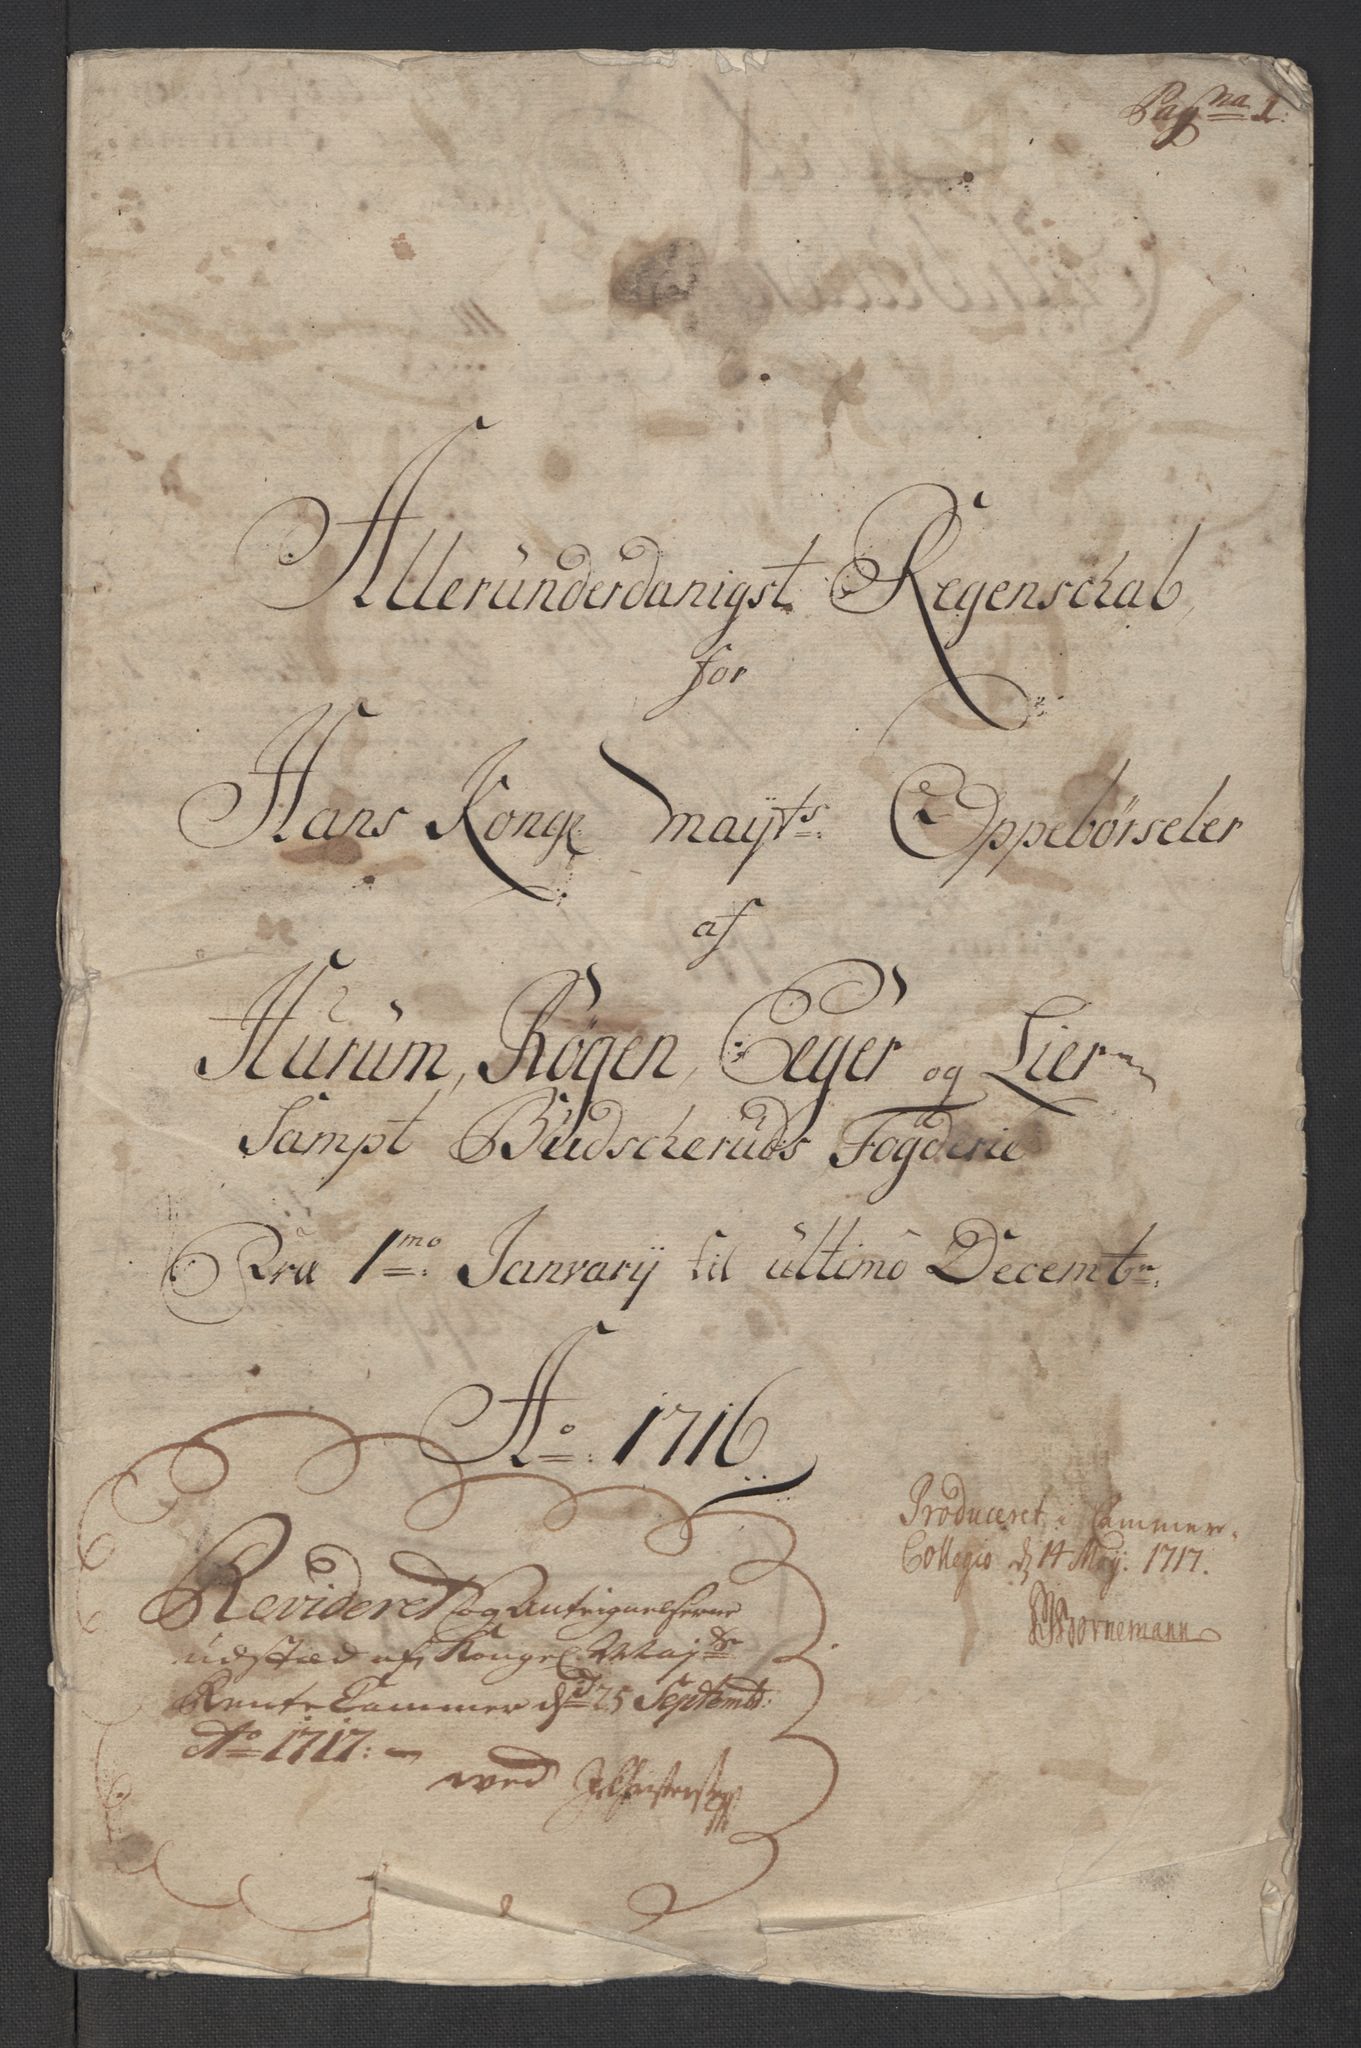 Pag na 1.
Alleründerdanigst Regenschab
for
Hans Kongl Mayts Oppebörseler
af
Hürüm, Rögen, Eeger og Lier
Sampt Budscheruds Fogderie
Fra 1mo Janvarij til ültimo Decembr.
Ao 1716
Produceret i Cammer-
Collegio d 14 Maij. 1717.
Bornemann
Revideret og Antegnelserne
udstæd af Kongel Mayts
Rente Cammer d 25 Septembr:
Ao 1717:
wed